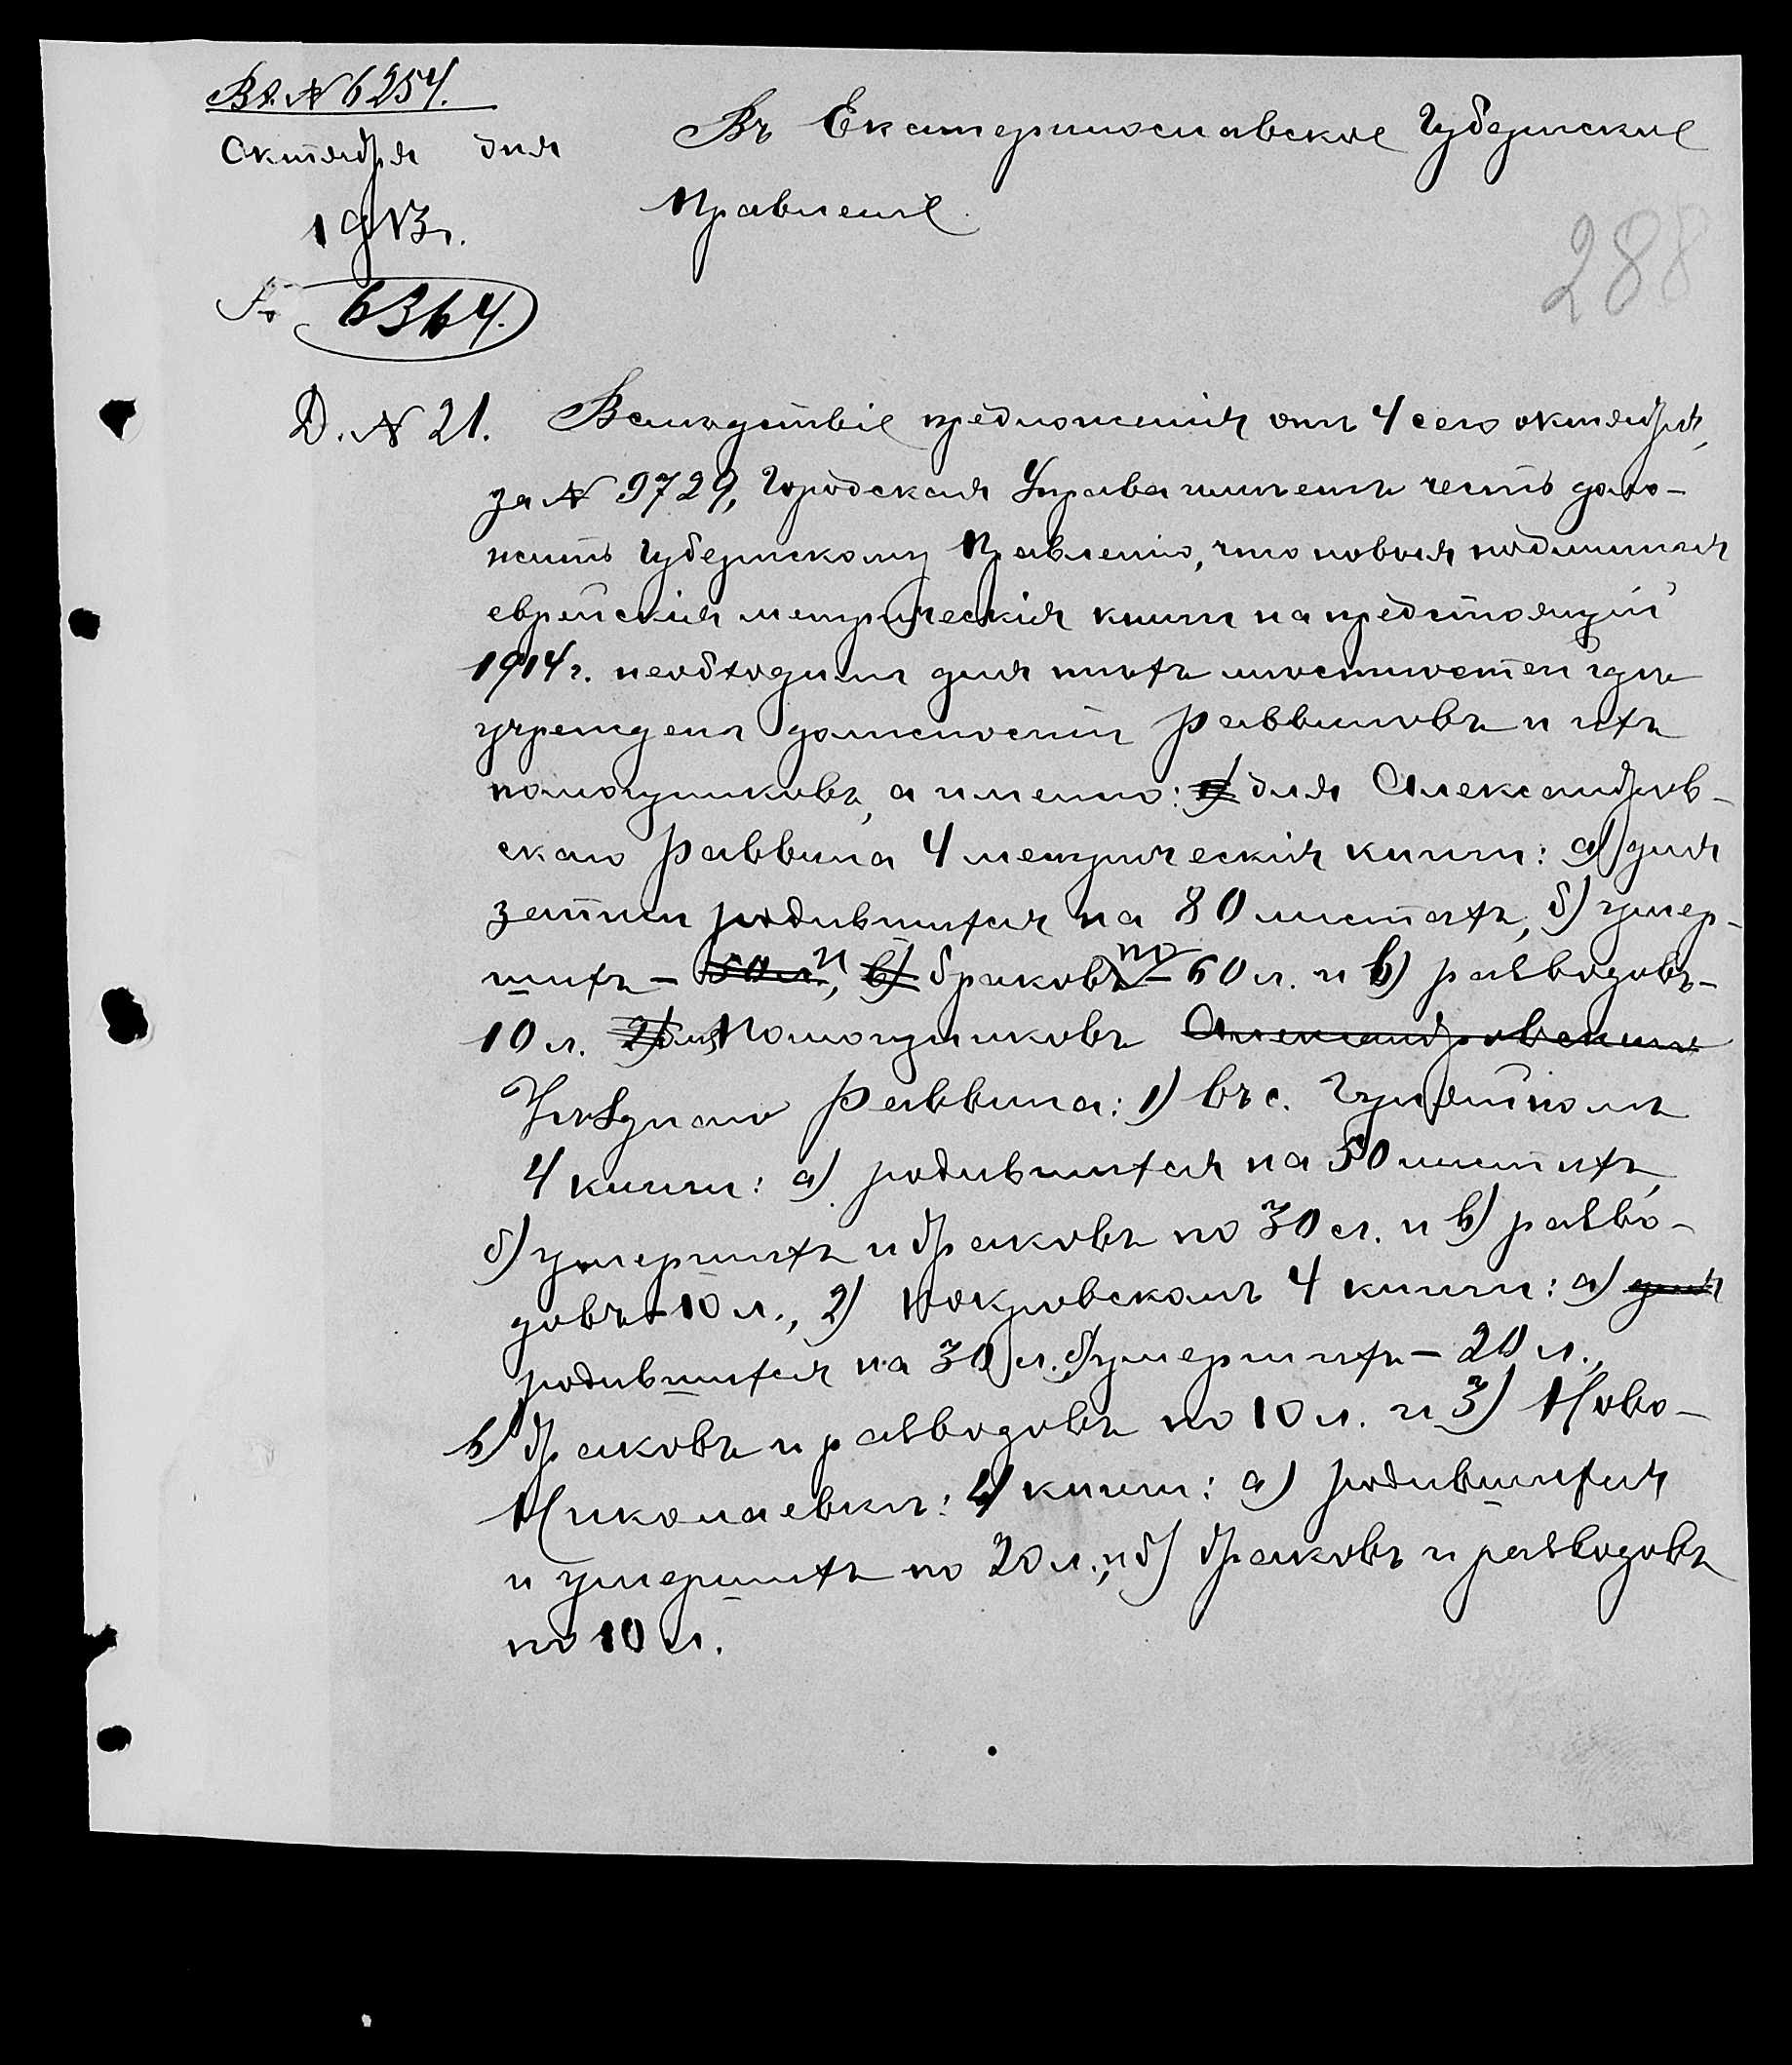 Вх. № 6254.
Октября дня
1913 г.
№ 6364.
Въ Екатеринославское Губернское
Правленiе.
288
Д. № 21. Вслѣдствiе предложенiя отъ 4 сего октября,
за № 9729, Городская Управа имѣетъ честь доло-
жить Губернскому Правленiю, что новыя подлинныя
еврейскiя метрическiя книги на предстоящiй
1914 г. необходимы для тѣхъ мѣстностей гдѣ
учреждены должности Раввиновъ и ихъ
помощниковъ, а именно: для Александров-
скаго Раввина 4 метрическiя книги: а) для
записи родившихся на 80 листахъ, б) умер-
шихъ – 50 л., и в) браковъ по – 60 л. и в) разводовъ –
10 л. 2) для Помощниковъ Александровскаго
Уѣзднаго Раввина: 1) въ с. Гуляйполѣ
4 книги: а) родившихся на 50 листахъ,
б) умершихъ и браковъ по 30 л. и в) разво-
довъ – 10 л., 2) Покровскомъ 4 книги: а) для
родившихся на 30 л. б) умершихъ – 20 л.,
в) браковъ и разводовъ по 10 л. и 3) Ново-
Николаевкѣ: 4 книги: а) родившихся
и умершихъ по 20 л., и б) браковъ и разводовъ
по 10 л.